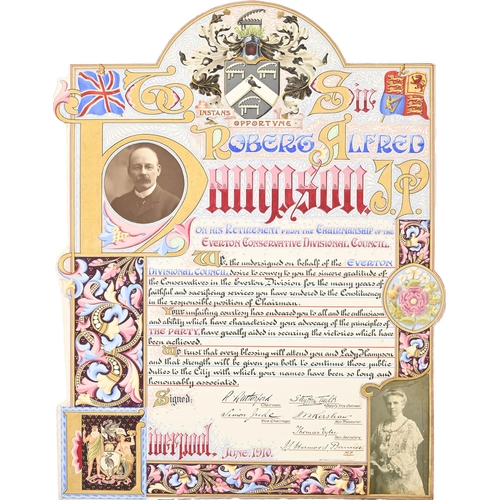 To Sir
INSTANS
OPPORTVNE
ROBERT ALFRED
Hampson. J.P.
ON HIS RETIREMENT FROM THE CHAIRMANSHIP OF THE
EVERTON CONSERVATIVE DIVISIONAL COUNCIL.
We, the undersigned on behalf of the EVERTON
DIVISIONAL COUNCIL, desire to convey to you the sincere gratitude of
the Conservatives in the Everton Division for the many years of
faithful and sacrificing service you have rendered to the Constituency
in the responsible position of Chairman.
Your unfailing courtesy has endeared you to all and the enthusiasm
and ability which have characterised your advocacy of the principles of
THE PARTY, have greatly aided in securing the victories which have
been achieved.
We trust that every blessing will attend you and Lady Hampson
and that strength will be given you both to continue those public
duties to the City with which your names have been so long and
honourably associated.
Signed:
Chairman
Simon Jude
Vice Chairman
Thomas Tyler
Liverpool. June, 1910.